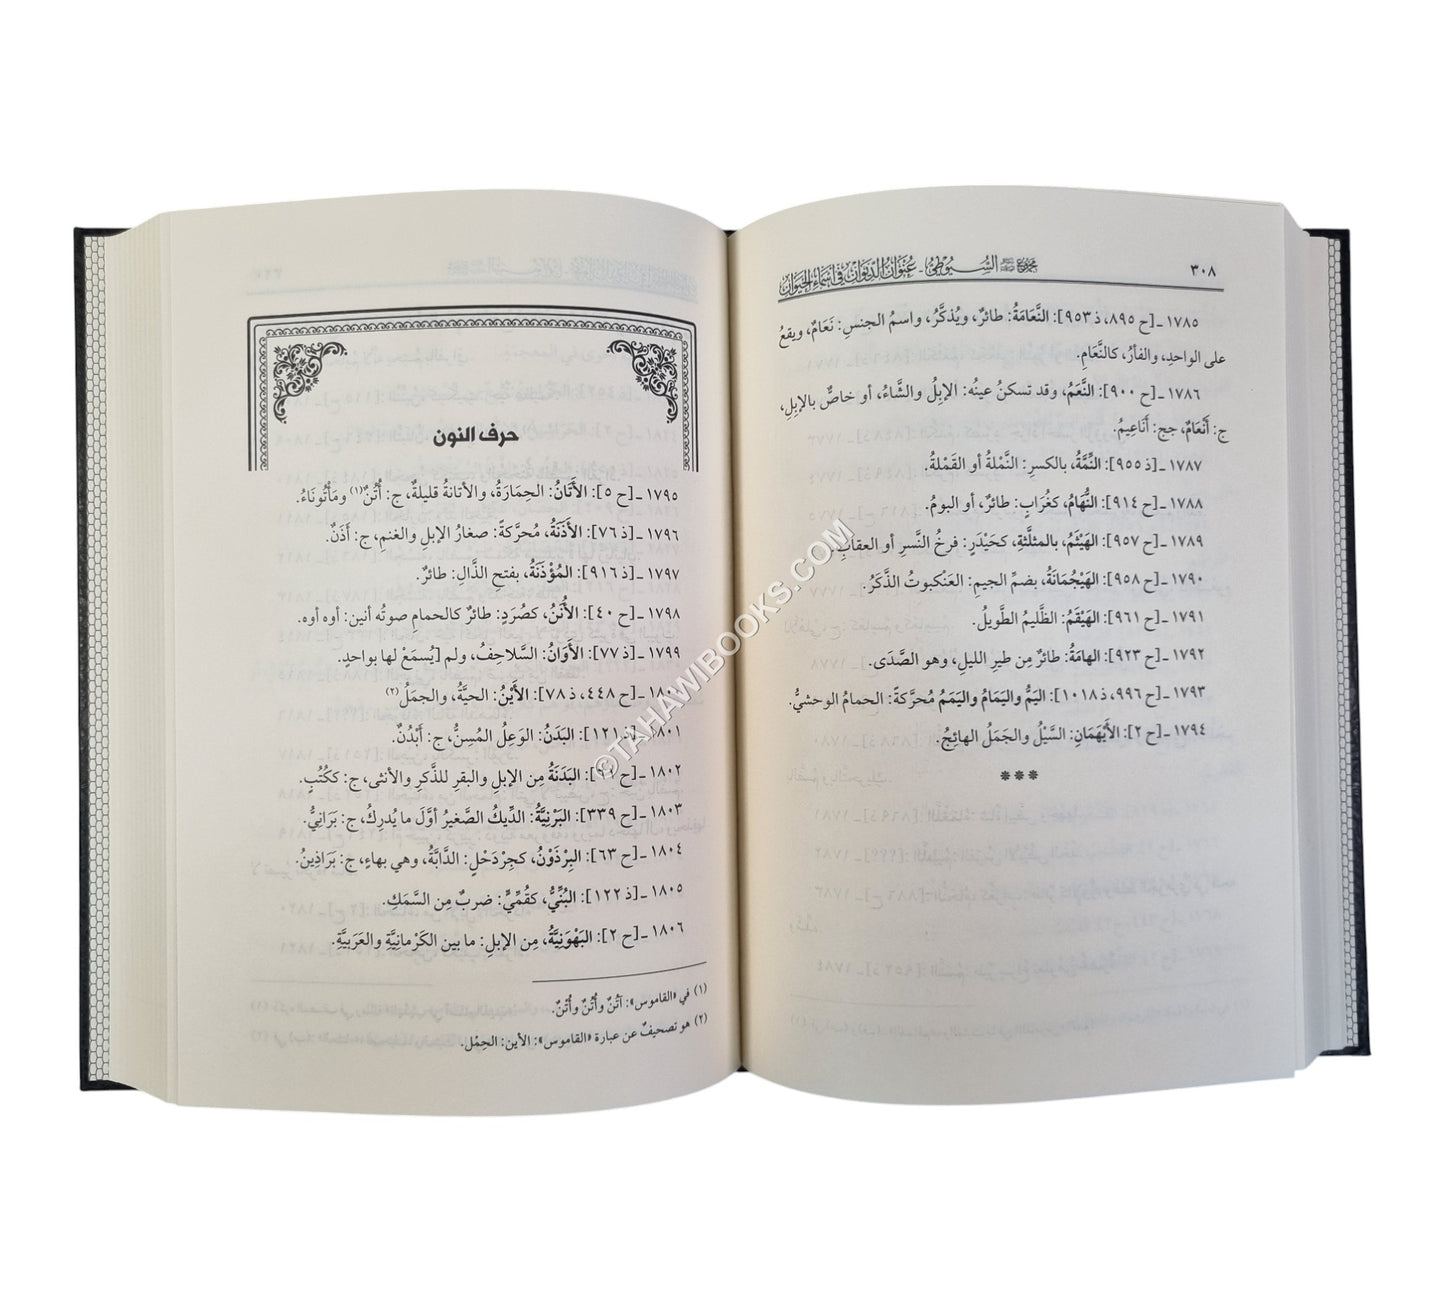 ٣٠٨
مجموع السيوطي - عنوان الديوان في أسماء الحيوان
١٧٨٥ ـ [ح ٨٩٥، ذ ٩٥٣]: النَّعَامَةُ: طائرٌ، ويُذكَّرُ، واسمُ الجنسِ: نَعَامٌ، ويقعُ
على الواحدِ، والفأرُ، كالنَّعَامِ.
١٧٨٦ ـ [ح ٩٠٠]: النَّعَمُ، وقد تسكنُ عينُه: الإبِلُ والشَّاءُ، أو خاصٌّ بالإبلِ،
ج: أَنْعَامٌ، جج: أَنَاعِيمُ.
١٧٨٧ ـ [ذ ٩٥٥]: النِّمَّةُ، بالكسرِ: النَّمْلةُ أو القَمْلةُ.
١٧٨٨ ـ [ح ٩١٤]: النُّهَامُ، كغُرَابٍ: طائرٌ، أو البومُ.
١٧٨٩ ـ [ح ٩٥٧]: الهَيْثَم، بالمثلَّثةِ، كحَيْدَرٍ: فرخُ النَّسرِ أو العقابِ.
١٧٩٠ ـ [ح ٩٥٨]: الهَيْجُمَانَةُ، بضمِّ الجيمِ: العَنْكبوتُ الذَّكَرُ.
١٧٩١ ـ [ح ٩٦١]: الهَيْقَمُ: الظَّليمُ الطَّويلُ.
١٧٩٢ ـ [ح ٩٢٣]: الهامَةُ: طائرٌ مِن طيرِ الليلِ، وهو الصَّدَى.
١٧٩٣ ـ [ح ٩٩٦، ذ ١٠١٨]: اليَمُّ واليَمَامُ واليَمَمُ مُحرَّكةً: الحمامُ الوحشيُّ.
١٧٩٤ ـ [ح ٢]: الأَيْهَمَانِ: السَّيْلُ والجَمَلُ الهائِجُ.
***
حرف النون
١٧٩٥ ـ [ح ٥]: الأَتَانُ: الحِمَارَةُ، والأتانةُ قليلةٌ، ج: أُتُنٌ(١) ومَأْتُونَاءُ.
١٧٩٦ ـ [ذ ٧٦]: الأَذَنَةُ، مُحرَّكةً: صغارُ الإبلِ والغنمِ، ج: أَذَنٌ.
١٧٩٧ ـ [ذ ٩١٦]: المُؤْذَنَةُ، بفتحِ الذَّالِ: طائرٌ.
١٧٩٨ ـ [ح ٤٠]: الأُنَنُ، كصُرَدٍ: طائرٌ كالحمامِ صوتُه أنين: أوه أوه.
١٧٩٩ ـ [ذ ٧٧]: الأَوَانُ: السَّلاحِفُ، ولم [يُسمَعْ لها بواحدٍ.
١٨٠٠ ـ [ح ٤٤٨، ذ ٧٨]: الأَيْنُ: الحيَّةُ، والجمَلُ(٢)
١٨٠١ ـ [ذ ١٢١]: البَدَنُ: الوَعِلُ المُسِنُّ، ج: أَبْدُنٌ.
١٨٠٢ ـ [ح ٩١]: البَدَنَةُ مِن الإبلِ والبقرِ للذَّكرِ والأنثى، ج: ككُتُبٍ.
١٨٠٣ ـ [ح ٣٣٩]: البَرْنِيَّةُ: الدِّيكُ الصَّغيرُ أوَّلَ ما يُدرِكُ، ج: بَرَانِيُّ.
١٨٠٤ ـ [ح ٦٣]: البِرْذَوْنُ، كجِرْدَحْلٍ: الدَّابَّةُ، وهي بهاءٍ، ج: بَرَاذِينُ.
١٨٠٥ ـ [ذ ١٢٢]: البُنِّيُّ، كقُمِّيٍّ: ضربٌ مِن السَّمَكِ.
١٨٠٦ ـ [ح ٢]: البَهْوَنِيَّةُ، مِن الإبلِ: ما بين الكَرْمانِيَّةِ والعَرَبِيَّةِ.
(١) في «القاموس»: آتُنٌ وأُتُنٌ وأُتْنٌ.
(٢) هو تصحيفٌ عن عبارة «القاموس»: الأين: الحِمْل.
©TAHAWIBOOKS.COM